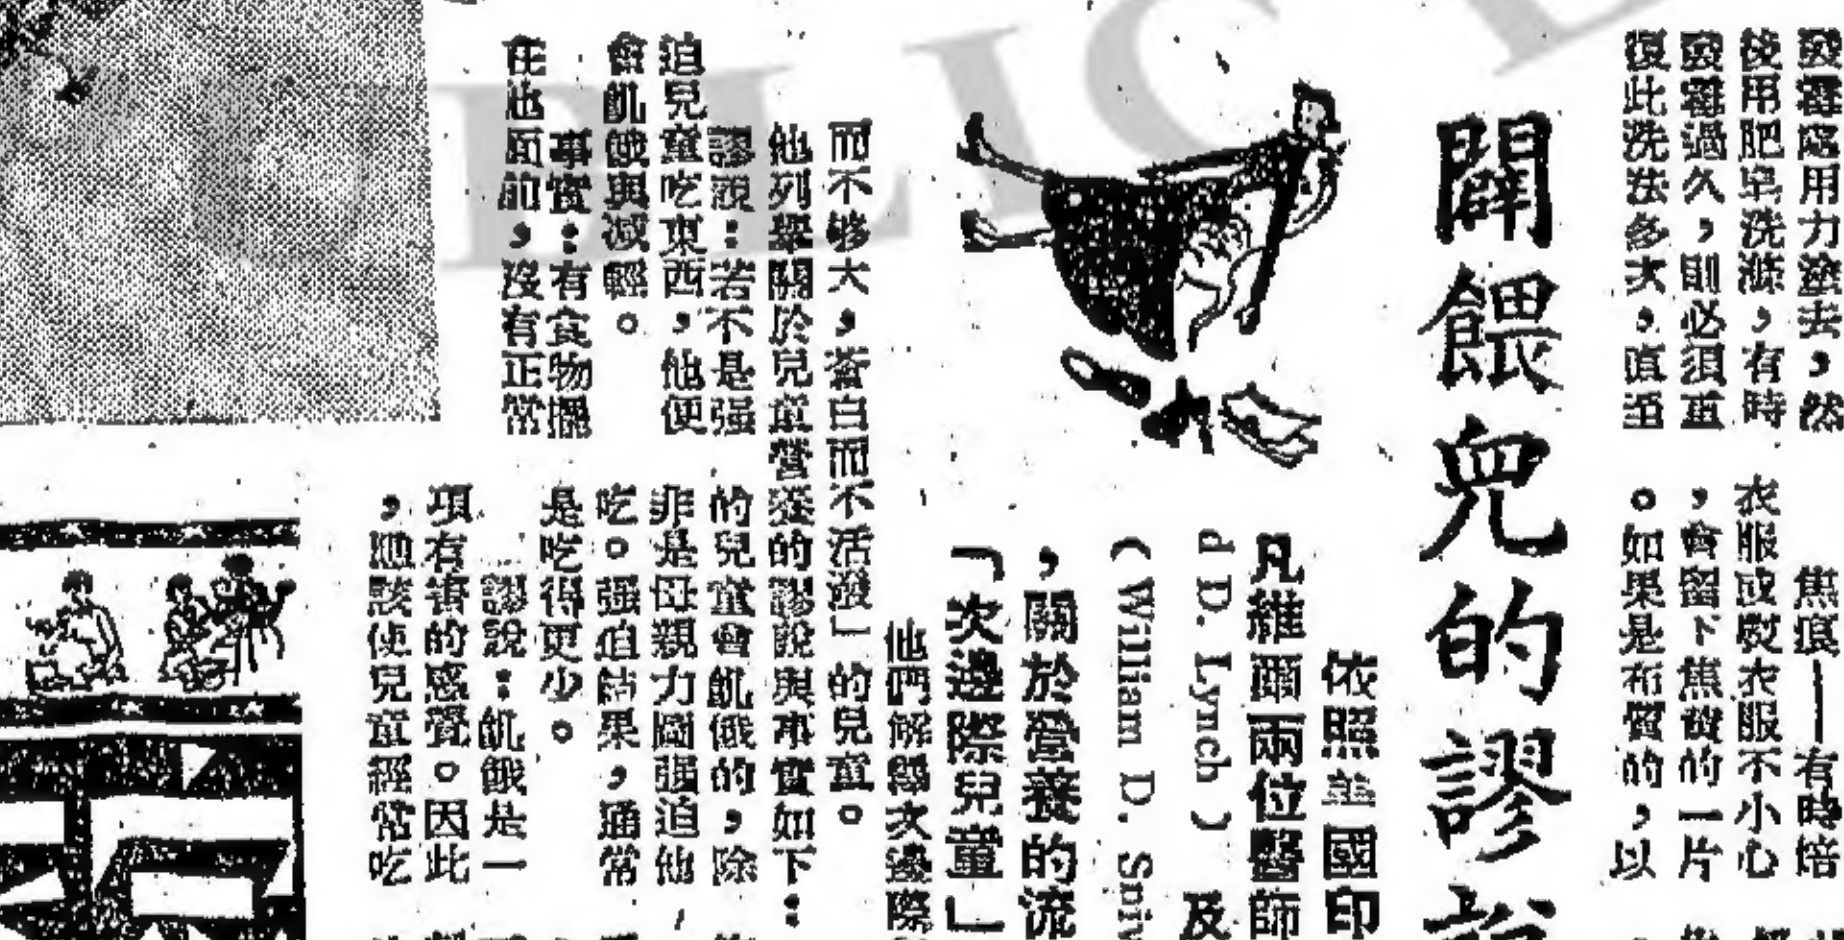 發霉處用力塗去,然
後用肥皂洗滌,有時
發霉過久,則必須重
復此洗法多次,直至
焦痕——有時焙
衣服或熨衣服不小心
,會留下焦黄的一片
。如果是布質的,以
闢餵兒的謬說
依照美國印
凡維爾兩位醫師
d D. Lynch)及
(William D. Sniv
,關於營養的流
「次邊際兒童」
他們解釋次邊際
而不够大,蒼白而不活潑」的兒童。
他列舉關於兒童營養的謬說與事實如下:
謬說:若不是强
迫兒童吃東西,他便
會飢餓與減輕。
事實:有食物擺
在他面前,沒有正常
的兒童會飢餓的,除
非是母親力圖强迫他
吃。强迫結果,通常
是吃得更少。
謬說:飢餓是一
項有害的感覺。因此
,她該使兒童經常吃